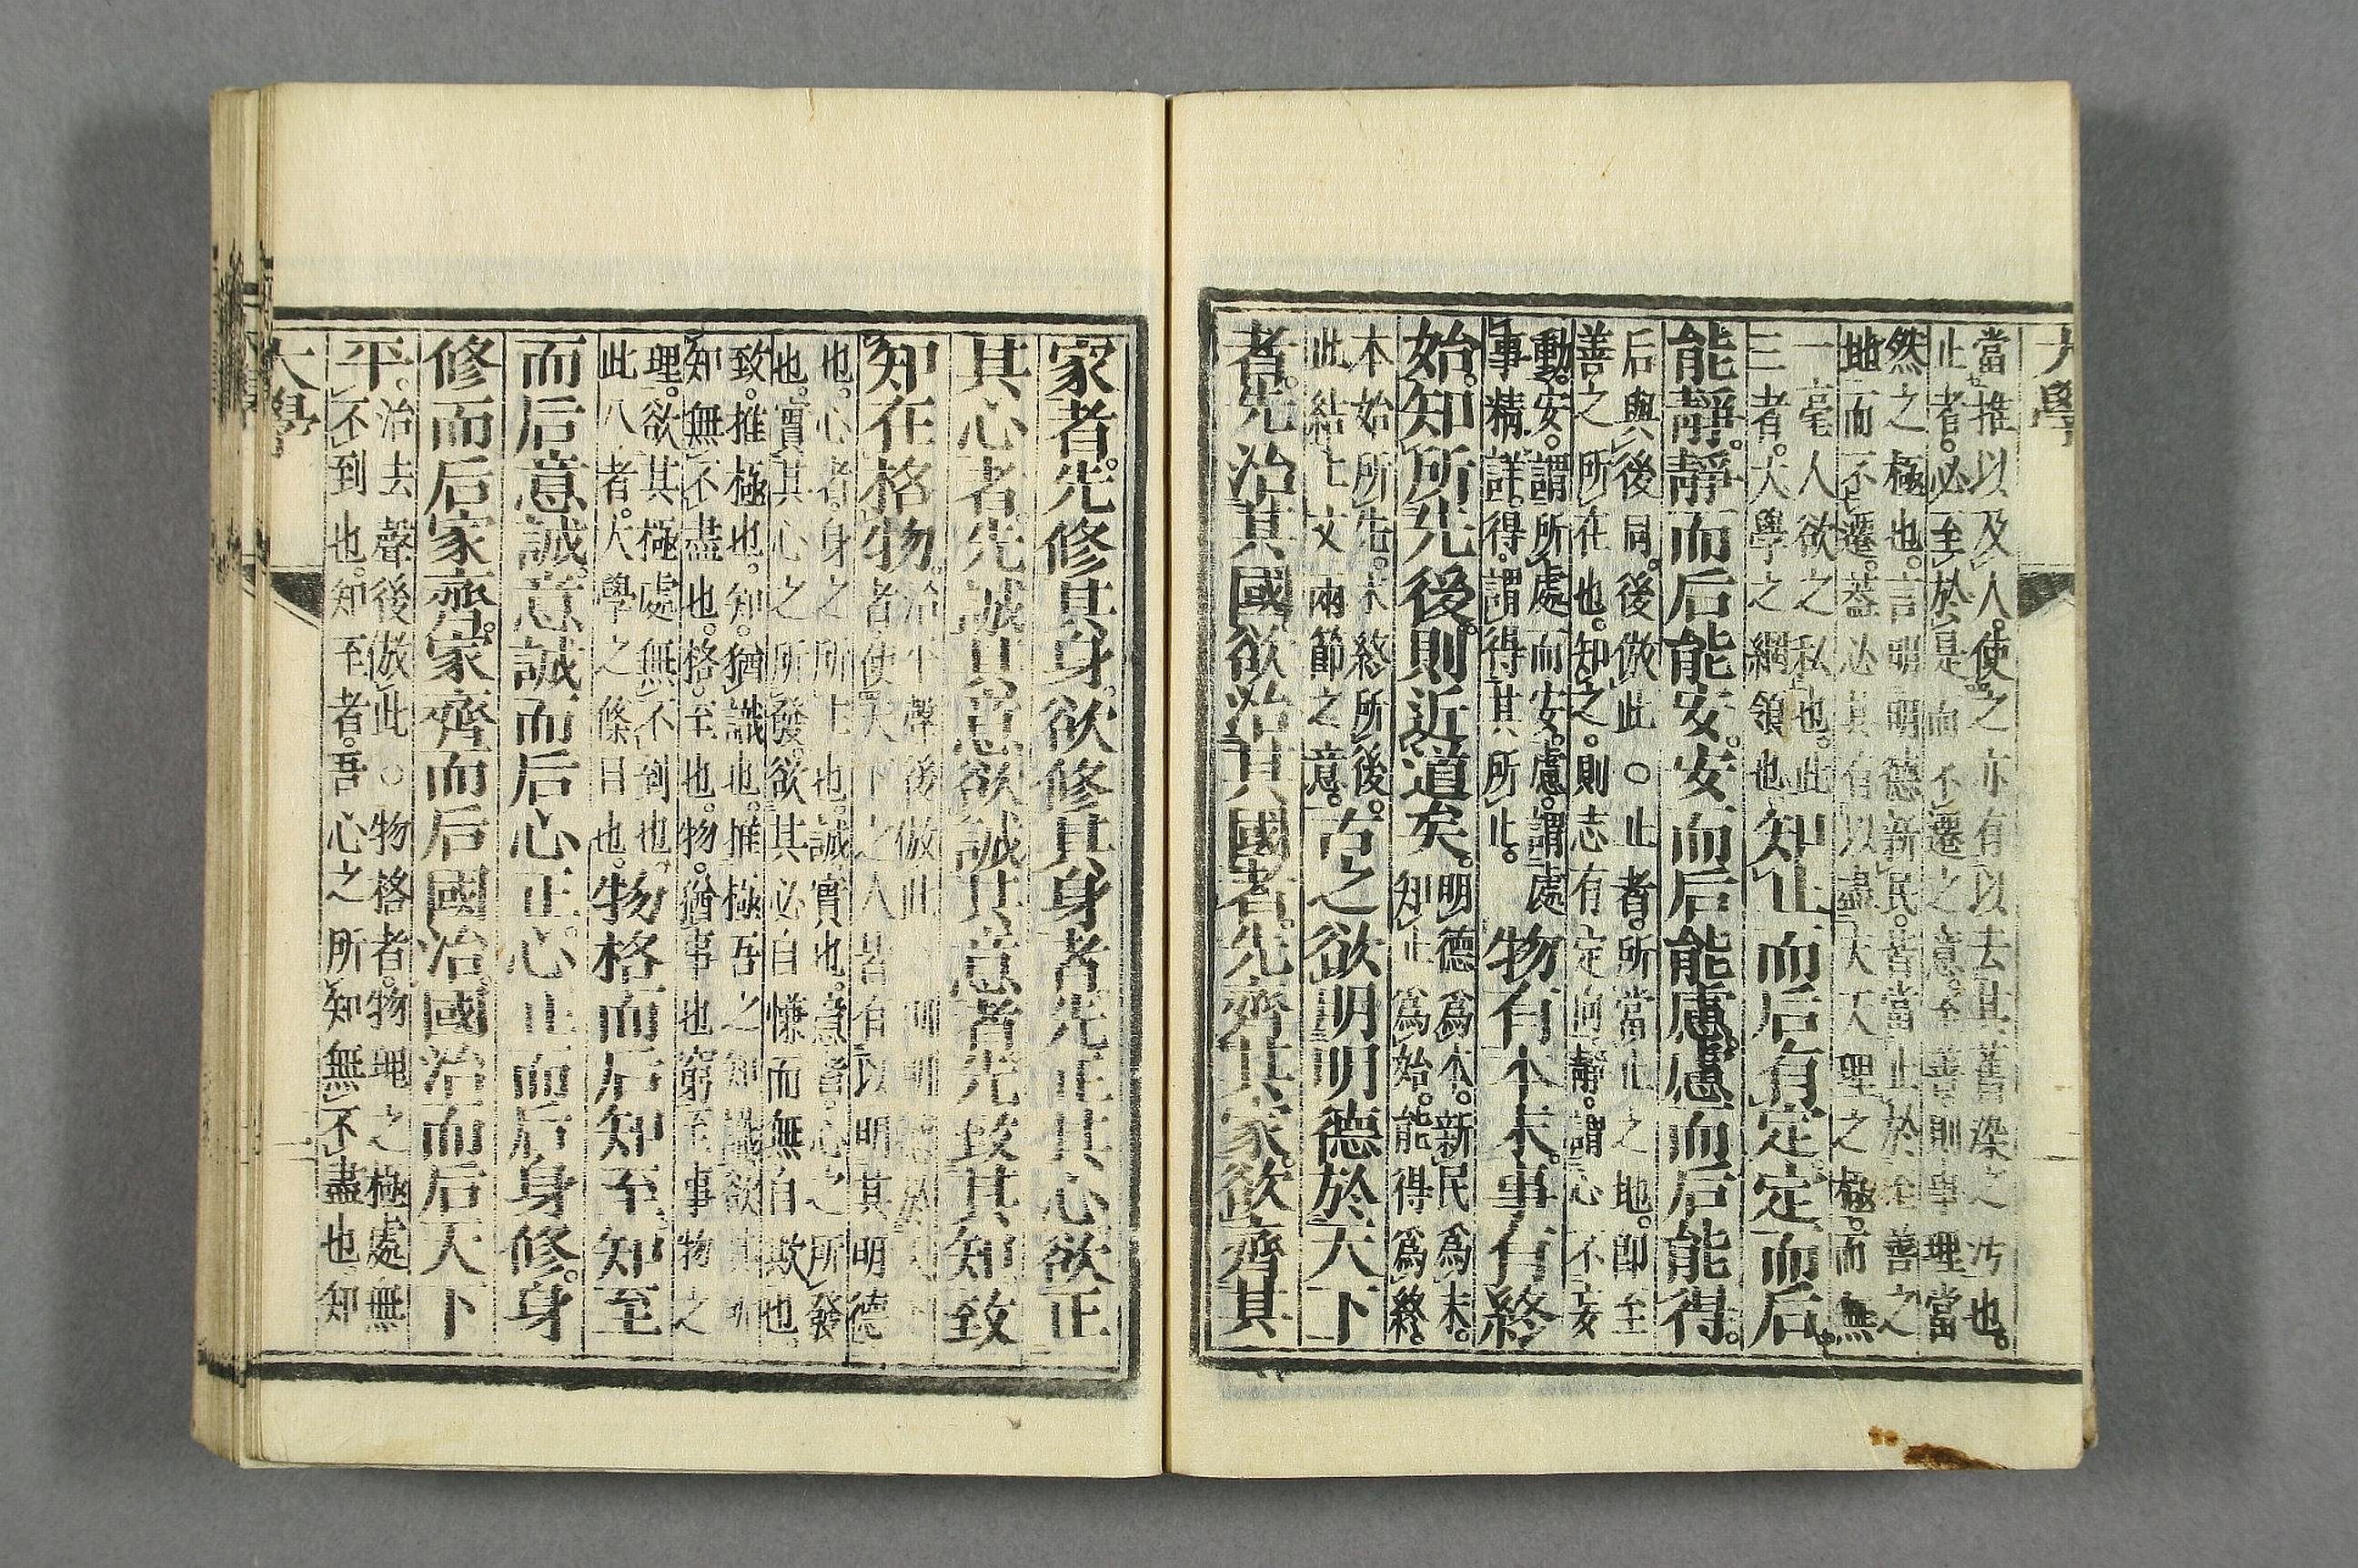 大學
當推以及人。使之亦有以去其舊染之汚也。
止者。必至於是而不遷之意。至善則事理當
然之極也。言明明德新民。皆當止於至善之
地而不遷。蓋必其有以盡夫天理之極。而無
一毫人欲之私也。此
三者。大學之綱領也
知止而后有定定而后
能靜。靜而后能安。安而后能慮。慮而后能得。
后與後同。後倣此○止者。所當止之地。卽至
善之所在也。知之。則志有定向。靜。謂心不妄
動。安。謂所處而安。慮。謂處
事精詳。得。謂得其所止。
物有本末。事有終
始。知所先後。則近道矣。
明德爲本。新民爲末。
知止爲始。能得爲終。
本始所先。末終所後。
此結上文兩節之意。
古之欲明明德於天下
者。先治其國欲治其國者。先齊其家。欲齊其
家者。先修其身。欲修其身者先正其心欲正
其心者先誠其意欲誠其意者先致其知致
知在格物。
治平聲後倣此 明明德於天下
者使天下之人皆有以明其明德
也。心者。身之所主也。誠實也。意者。心之所發
也。實其心之所發。欲其必自慊而無自欺也。
致。推極也。知。猶識也。推極吾之知識欲其所
知無不盡也。格。至也。物。猶事也窮至事物之
理。欲其極處無不到也。
此八者。大學之條目也。
物格而后知至。知至
而后意誠。意誠而后心正。心正而后身修。身
修而后家齊。家齊而后國治。國治而后天下
平。
治去聲後倣此○物格者。物理之極處無
不到也。知至者。吾心之所知無不盡也知
大學